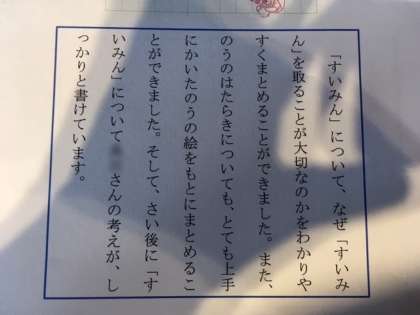 「すいみん」について、なぜ「すいみ
ん」を取ることが大切なのかをわかりや
すくまとめることができました。また、
のうのはたらきについても、とても上手
にかいたのうの絵をもとにまとめるこ
とができました。そして、さい後に「す
いみん」について さんの考えが、し
っかりと書けています。